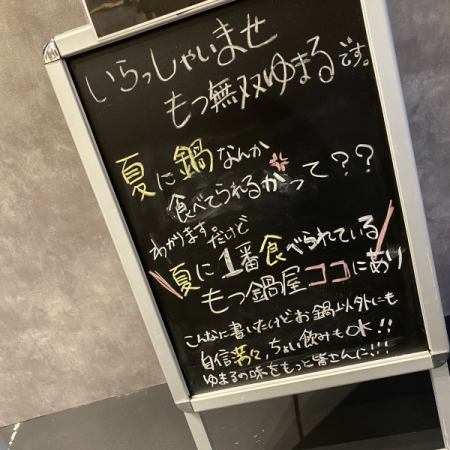 いらっしゃいませ
もつ無双ゆまるです。
夏に鍋なんか
食べてられるかって??
わかります だけど
夏に1番食べられている
もつ鍋屋ココにあり
こんなに書いたけどお鍋以外にも
自信満々、ちょい飲みもOK!!
ゆまるの味をもっと皆さんに!!!